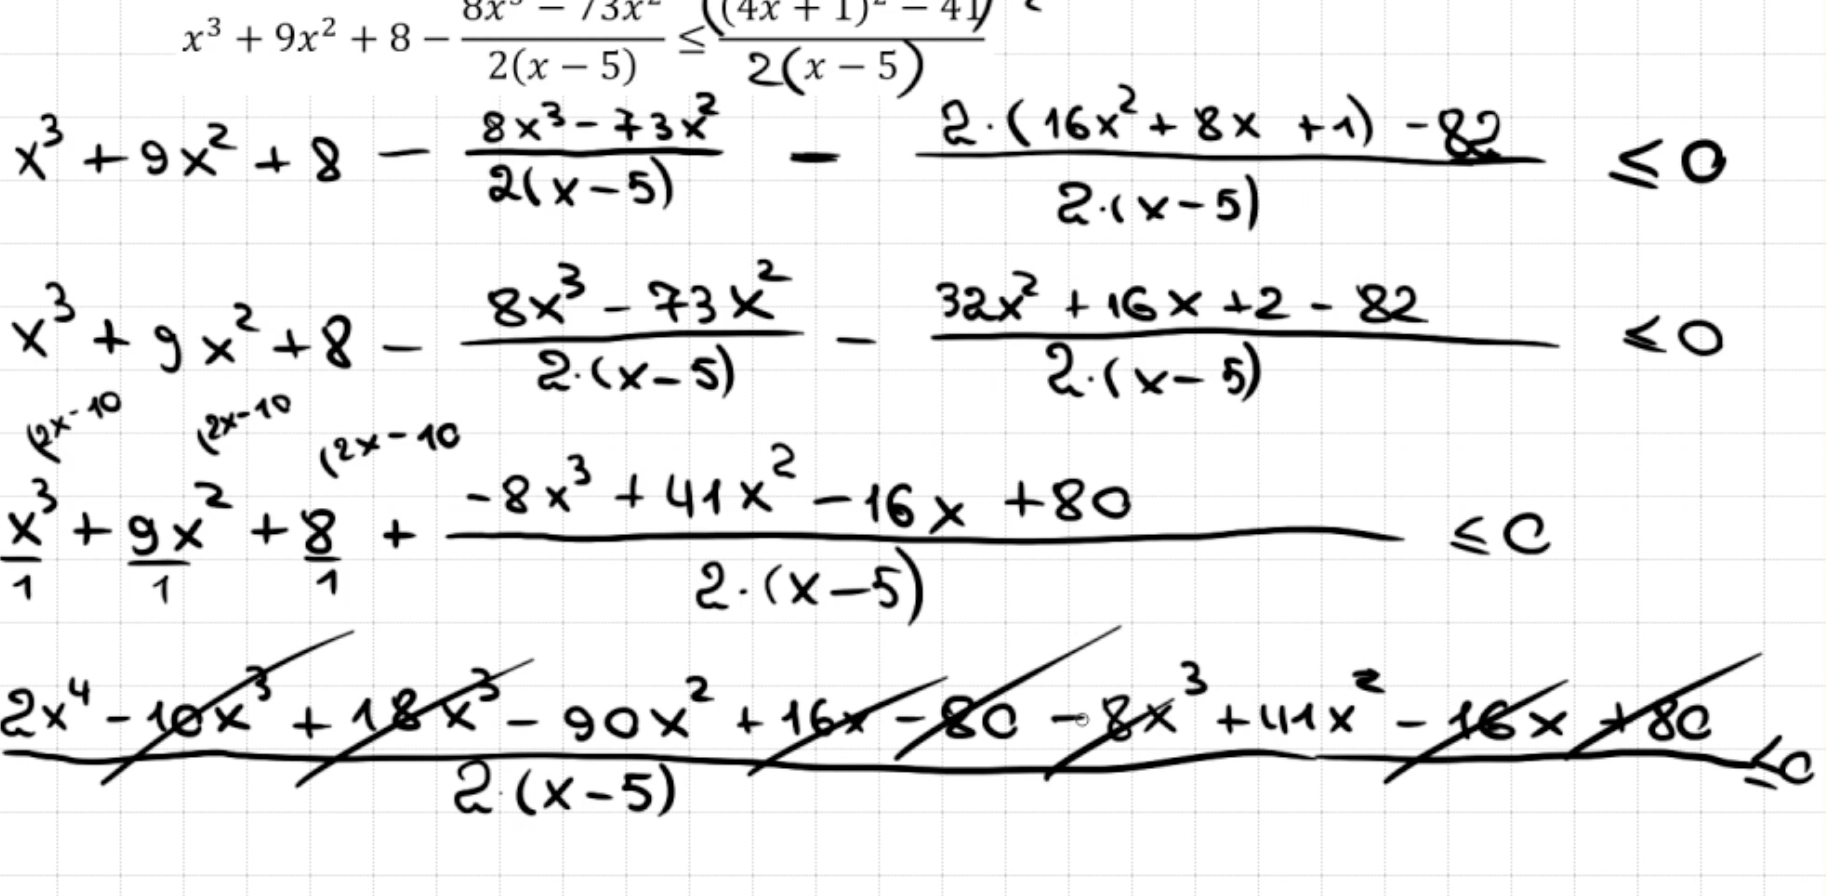 x³ + 9x² + 8 − (8x³ − 73x²)/(2(x − 5)) ≤ ((4x + 1)² − 41)/(2(x − 5))
x³ + 9x² + 8 − (8x³ − 73x²)/(2(x−5)) − (2·(16x² + 8x + 1) − 82)/(2·(x−5)) ≤ 0
x³ + 9x² + 8 − (8x³ − 73x²)/(2·(x−5)) − (32x² + 16x + 2 − 82)/(2·(x−5)) ≤ 0
(2x−10 (2x−10 (2x−10
x³/1 + 9x²/1 + 8/1 + (−8x³ + 41x² − 16x + 80)/(2·(x−5)) ≤ 0
(2x⁴ − 10x³ + 18x³ − 90x² + 16x − 80 − 8x³ + 41x² − 16x + 80)/(2·(x−5)) ≤ 0